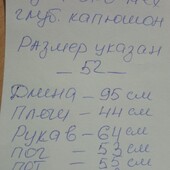 глуб. капюшон
Размер указан
— 52 —
Длина – 95 см
Плечи – 44 см
Рукав – 64 см
ПОГ – 53 см
ПОТ – 55 см